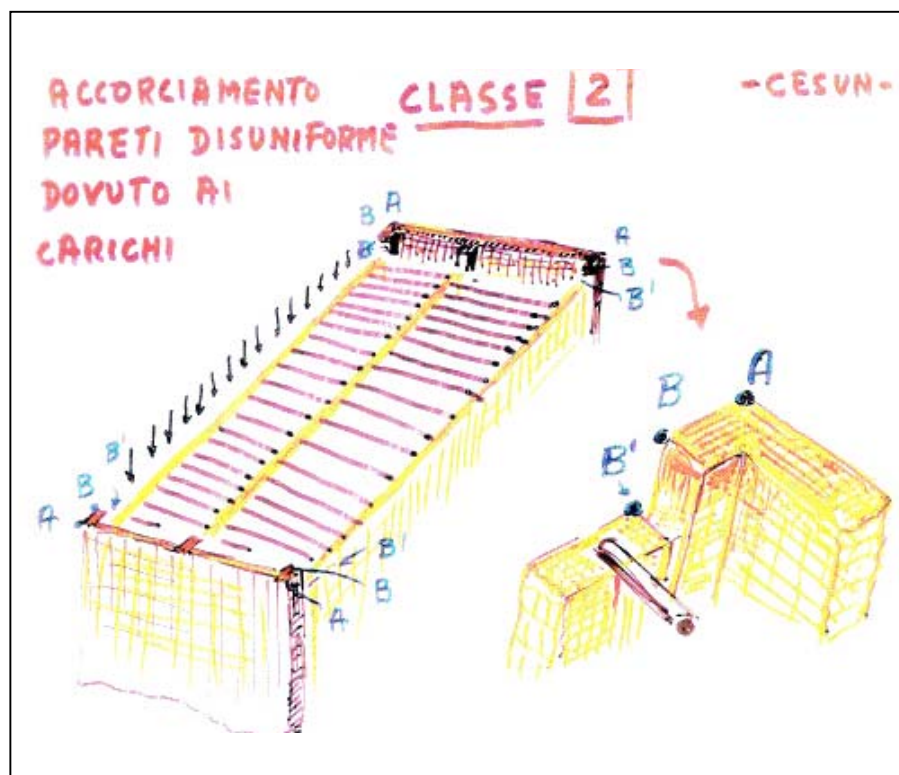 ACCORCIAMENTO
PARETI DISUNIFORME
DOVUTO AI
CARICHI
CLASSE 2
-CESUN-
B A
B
A
B
B'
B'
B
A
B'
B
A
A
B
B'